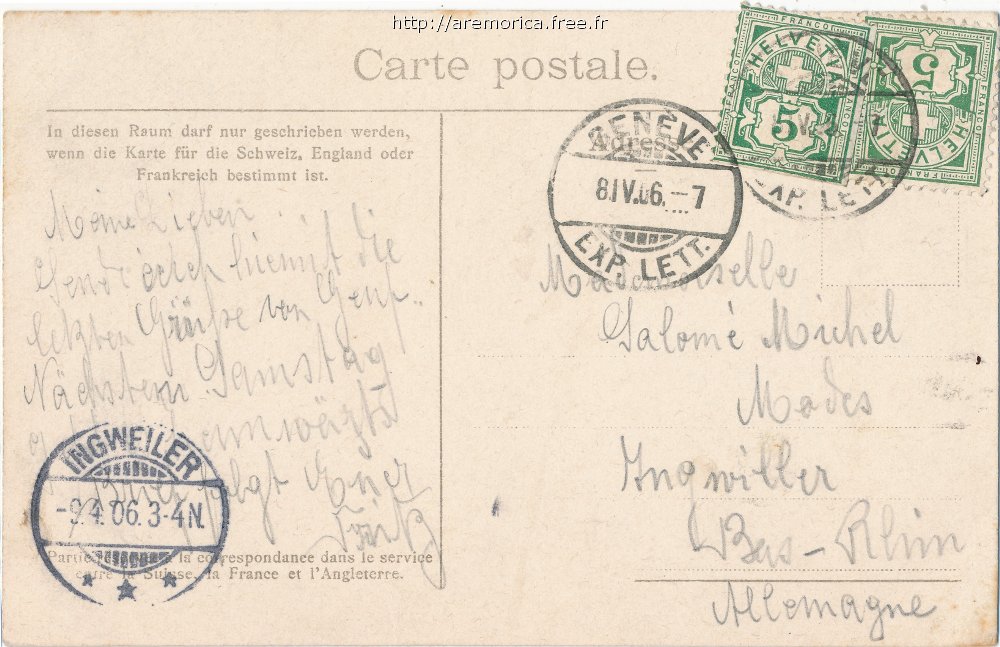 http://aremorica.free.fr
Carte postale.
FRANCO
HELVETIA
5
FRANCO
FRANCO
HELVETIA
5
FRANCO
EXP. LETT.
GENÈVE
8.IV.06.-7
EXP. LETT.
Adresse
In diesen Raum darf nur geschrieben werden,
wenn die Karte für die Schweiz, England oder
Frankreich bestimmt ist.
Meine Lieben
Send euch hiermit die
letzten Grüße von Genf.
Nächstem Samstag
heimwärts
Brief folgt Euer
Fritz
INGWEILER
-9.4.06.3-4N.
Partie la correspondance dans le service
entre la Suisse, la France et l'Angleterre.
Mademoiselle
Salomé Michel
Modes
Ingwiller
Bas-Rhin
Allemagne